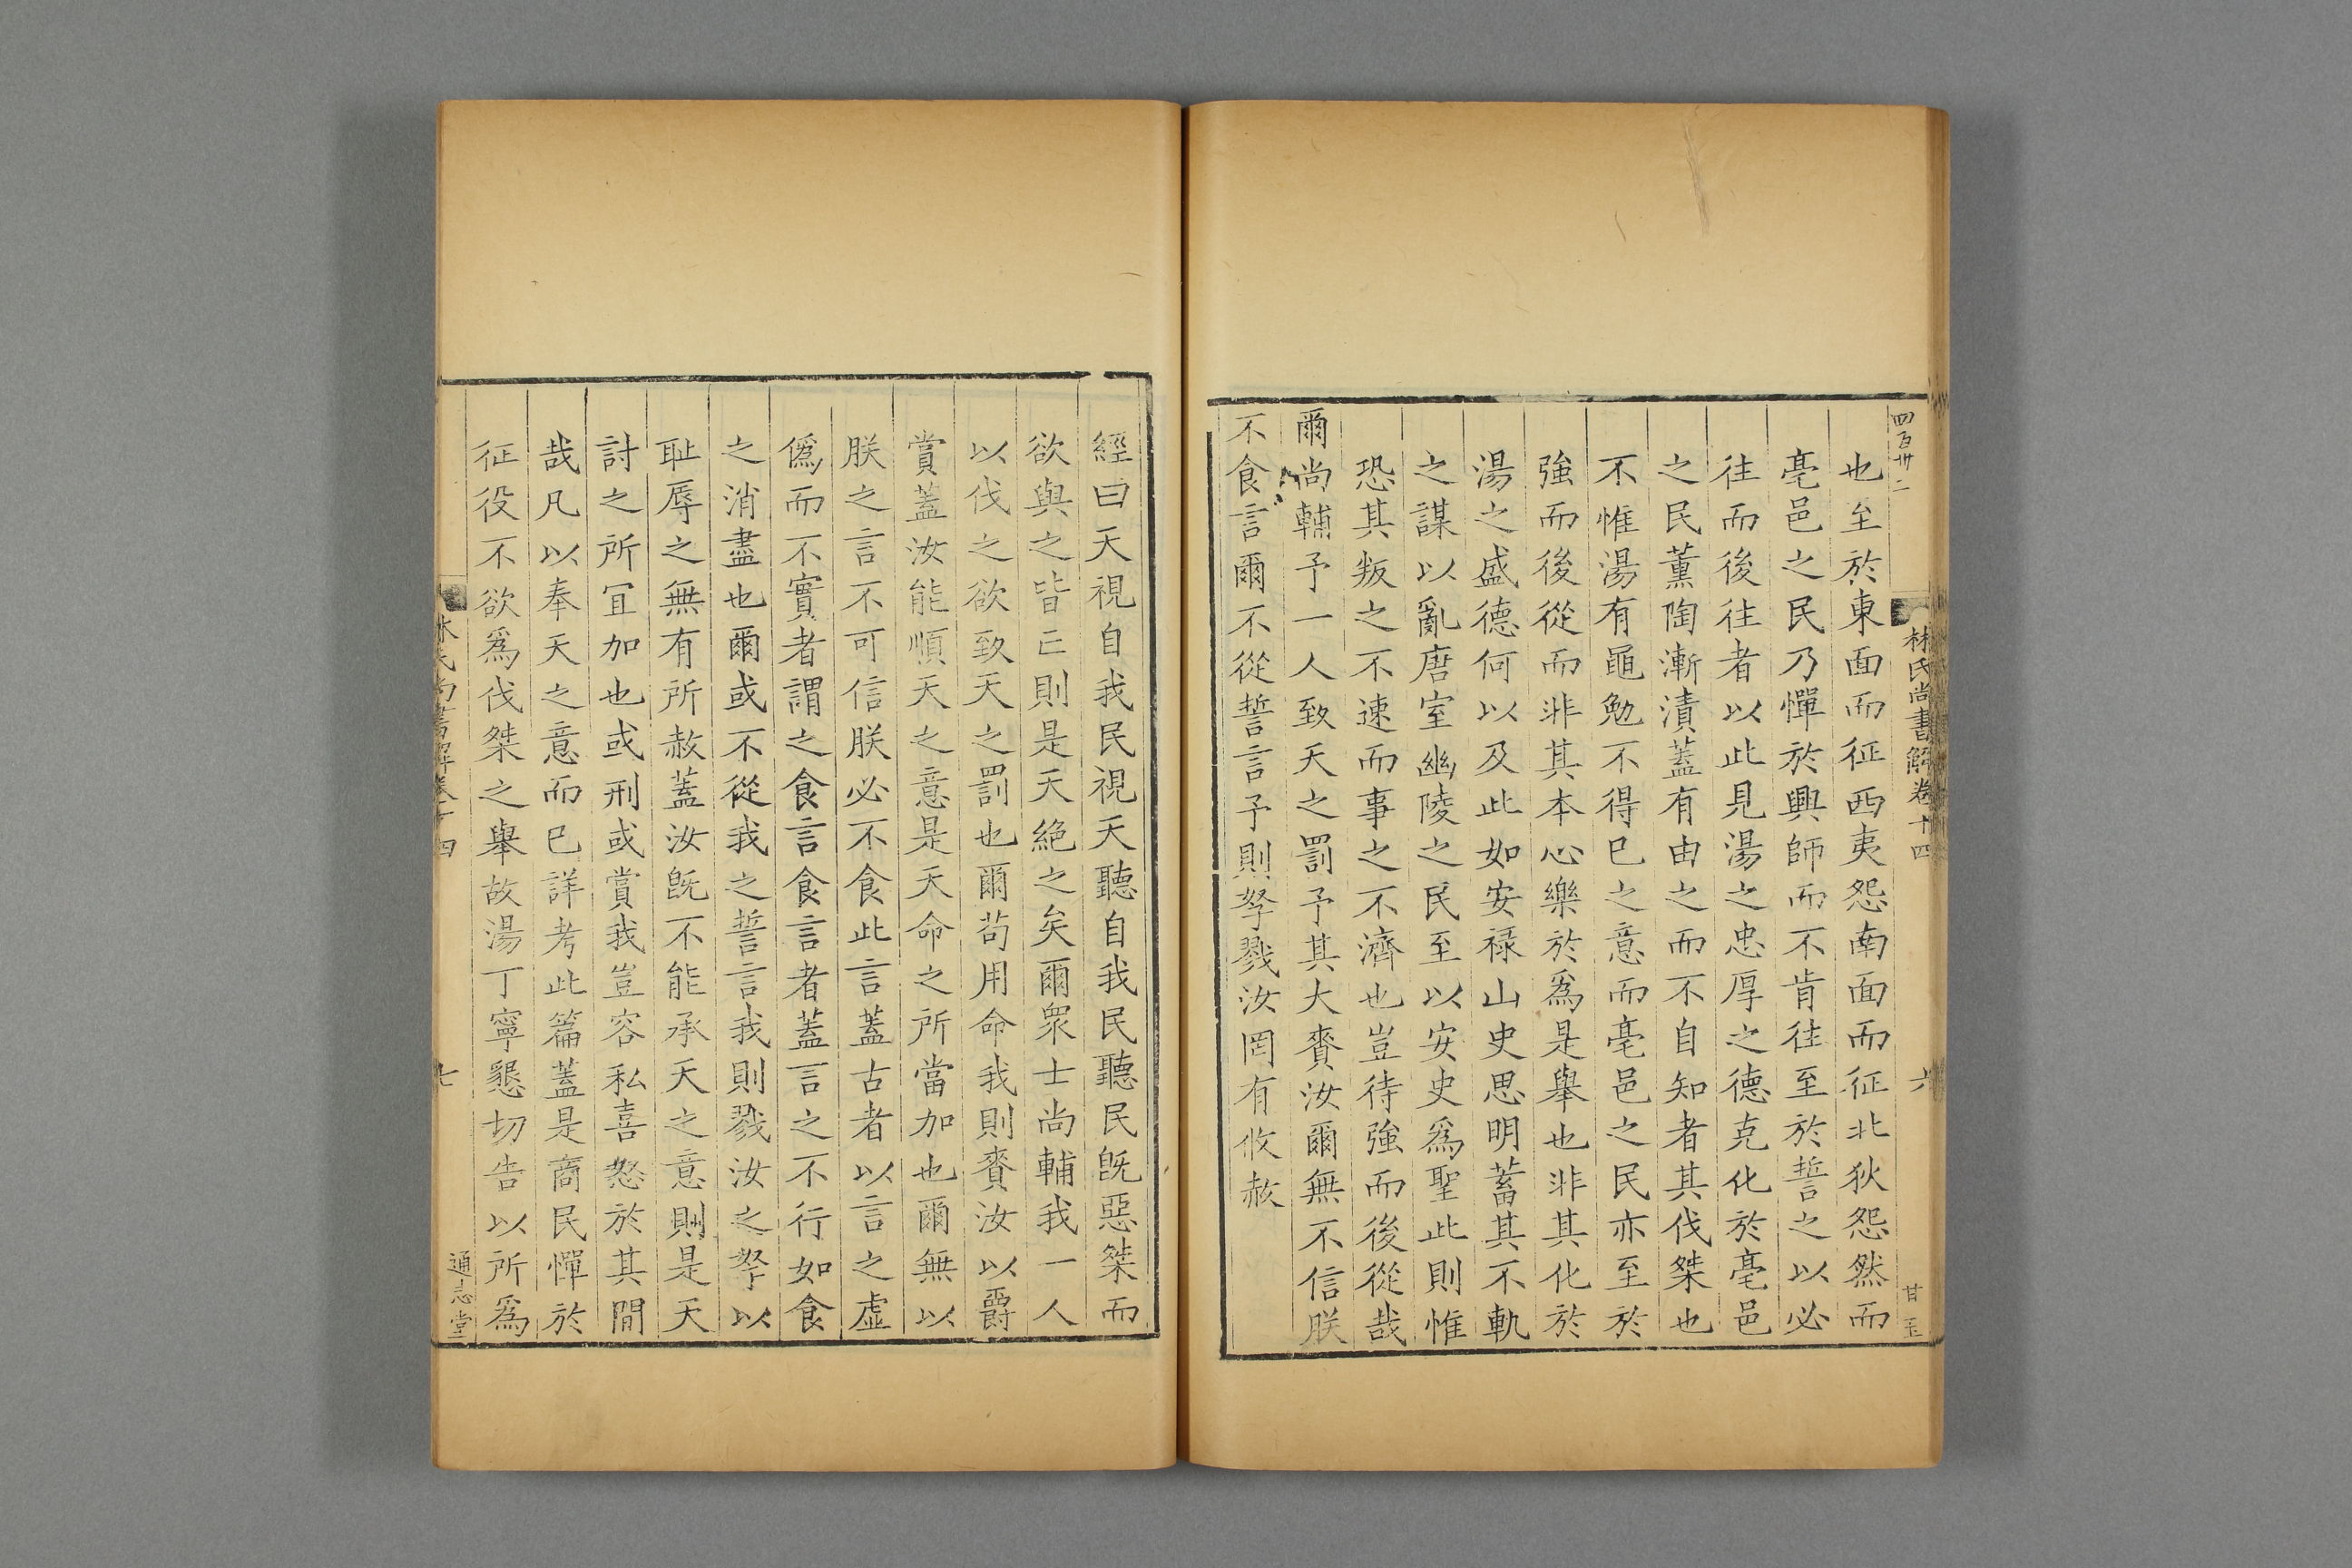 四百卅二
林氏尚書解卷十四
六
甘玉
也至於東面而征西夷怨南面而征北狄怨然而
亳邑之民乃憚於興師而不肯往至於誓之以必
往而後往者以此見湯之忠厚之德克化於亳邑
之民薰陶漸漬蓋有由之而不自知者其伐桀也
不惟湯有黽勉不得巳之意而亳邑之民亦至於
強而後從而非其本心樂於為是舉也非其化於
湯之盛德何以及此如安祿山史思明蓄其不軌
之謀以亂唐室幽陵之民至以安史為聖此則惟
恐其叛之不速而事之不濟也豈待強而後從哉
爾尚輔予一人致天之罰予其大賚汝爾無不信朕
不食言爾不從誓言予則孥戮汝罔有攸赦
經曰天視自我民視天聽自我民聽民旣惡桀而
欲與之皆亡則是天絶之矣爾衆士尚輔我一人
以伐之欲致天之罰也爾苟用命我則賚汝以爵
賞蓋汝能順天之意是天命之所當加也爾無以
朕之言不可信朕必不食此言蓋古者以言之虛
僞而不實者謂之食言食言者蓋言之不行如食
之消盡也爾或不從我之誓言我則戮汝之孥以
耻辱之無有所赦蓋汝旣不能承天之意則是天
討之所宜加也或刑或賞我豈容私喜怒於其間
哉凡以奉天之意而巳詳考此篇蓋是商民憚於
征役不欲為伐桀之舉故湯丁寧懇切告以所為
林氏尚書解卷十四
七
通志堂